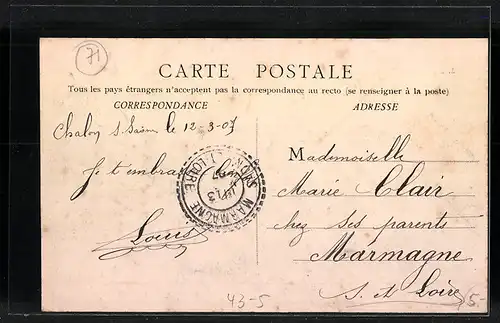 71
CARTE POSTALE
Tous les pays étrangers n'acceptent pas la correspondance au recto (se renseigner à la poste)
CORRESPONDANCE
ADRESSE
Chalon s Saône le 12-3-07
Je t'embrasse
Louis
MARMAGNE
SAÔNE-ET-LOIRE
13
07
Mademoiselle
Marie Clair
chez ses parents
Marmagne
S. et Loire
43-5
5-